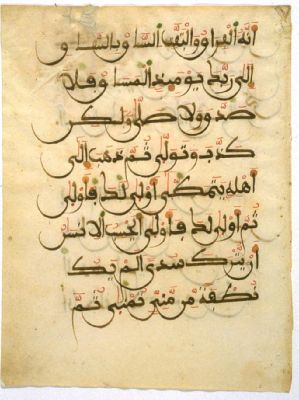 أنه الفراق والتفت الساق بالساق
إلى ربك يومئذ المساق فلا
صدق ولا صلى ولكن
كذب وتولى ثم ذهب إلى
أهله يتمطى أولى لك فأولى
ثم أولى لك فأولى أيحسب الانسن
أن يترك سدى ألم يك
نطفة من مني تمنى ثم